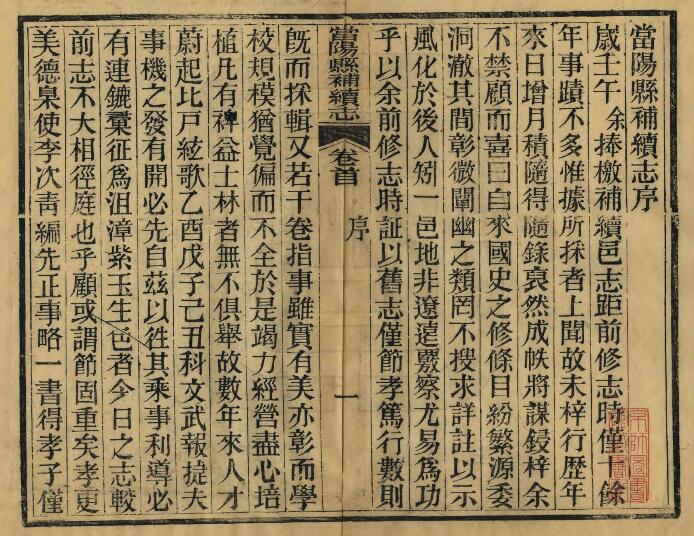 當陽縣補續志序
歲壬午余捧檄補續邑志距前修志時僅十餘
年事蹟不多惟據所採者上聞故未梓行歷年
來日增月積隨得隨錄裒然成帙將謀鋟梓余
不禁顧而喜曰自來國史之修條目紛繁源委
洞澈其間彰微闡幽之類罔不搜求詳註以示
風化於後人矧一邑地非遼遠覈察尤易為功
乎以余前修志時証以舊志僅節孝篤行數則
當陽縣補續志
卷首
序
一
既而採輯又若干卷指事雖實有美亦彰而學
校規模猶覺偏而不全於是竭力經營盡心培
植凡有裨益士林者無不俱舉故數年來人才
蔚起比戶絃歌乙酉戊子己丑科文武報捷夫
事機之發有開必先自茲以徃其乘事利導必
有連鑣彚征為沮漳紫玉生色者今日之志較
前志不大相徑庭也乎顧或謂節固重矣孝更
美德臬使李次青編先正事略一書得孝子僅